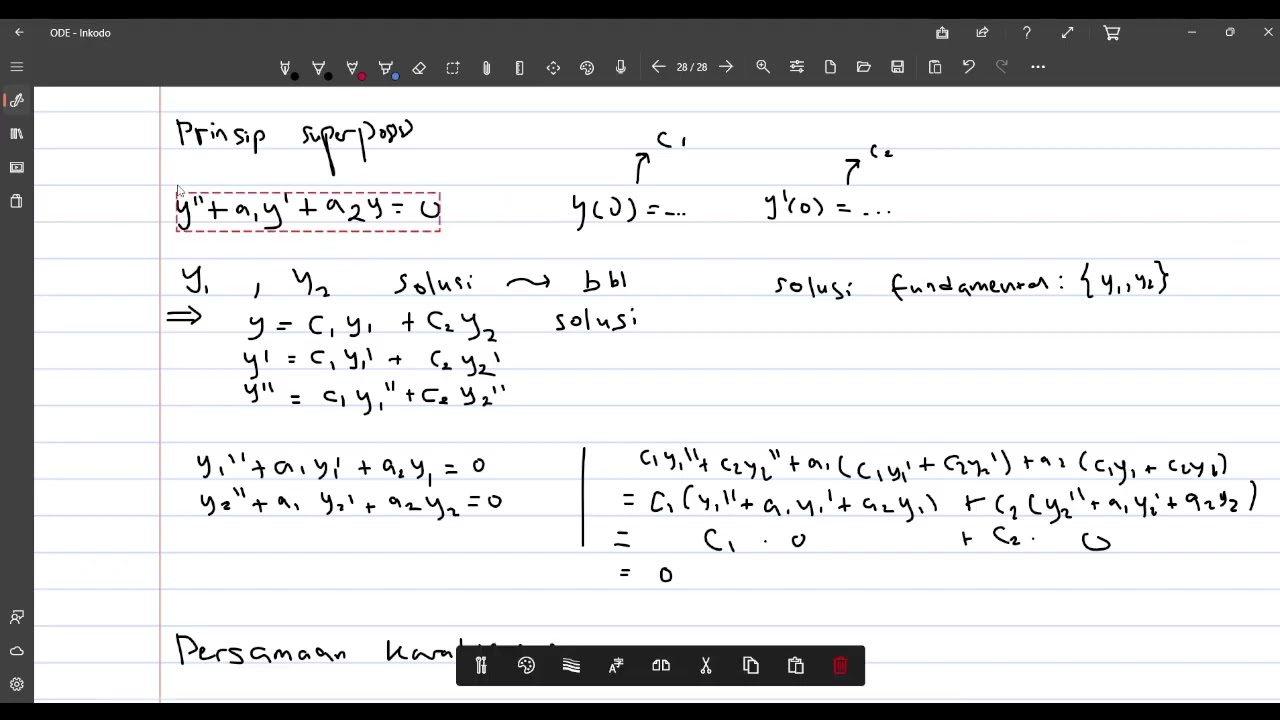 ODE - Inkodo
28 / 28
Prinsip superposisi
C₁
C₂
y'' + a₁y' + a₂y = 0 y(0) = ... y'(0) = ...
y₁ , y₂ solusi → bbl solusi fundamental : {y₁, y₂}
⇒ y = C₁ y₁ + C₂ y₂ solusi
y' = C₁ y₁' + C₂ y₂'
y'' = C₁ y₁'' + C₂ y₂''
y₁'' + a₁ y₁' + a₂ y₁ = 0
y₂'' + a₁ y₂' + a₂ y₂ = 0
C₁y₁'' + C₂y₂'' + a₁ (C₁y₁' + C₂y₂') + a₂ (C₁y₁ + C₂y₂)
= C₁ (y₁'' + a₁ y₁' + a₂ y₁) + C₂ (y₂'' + a₁y₂' + a₂y₂)
= C₁ . 0 + C₂ . 0
= 0
Persamaan